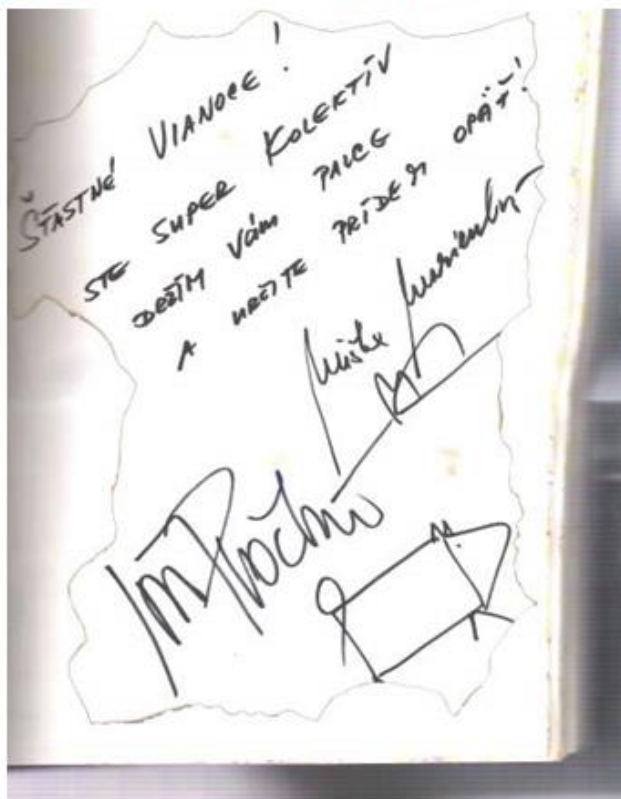 ŠŤASTNÉ VIANOCE!
STE SUPER KOLEKTÍV
DRŽÍM VÁM PALCE
A URČITE PRÍDEM OPÄŤ!